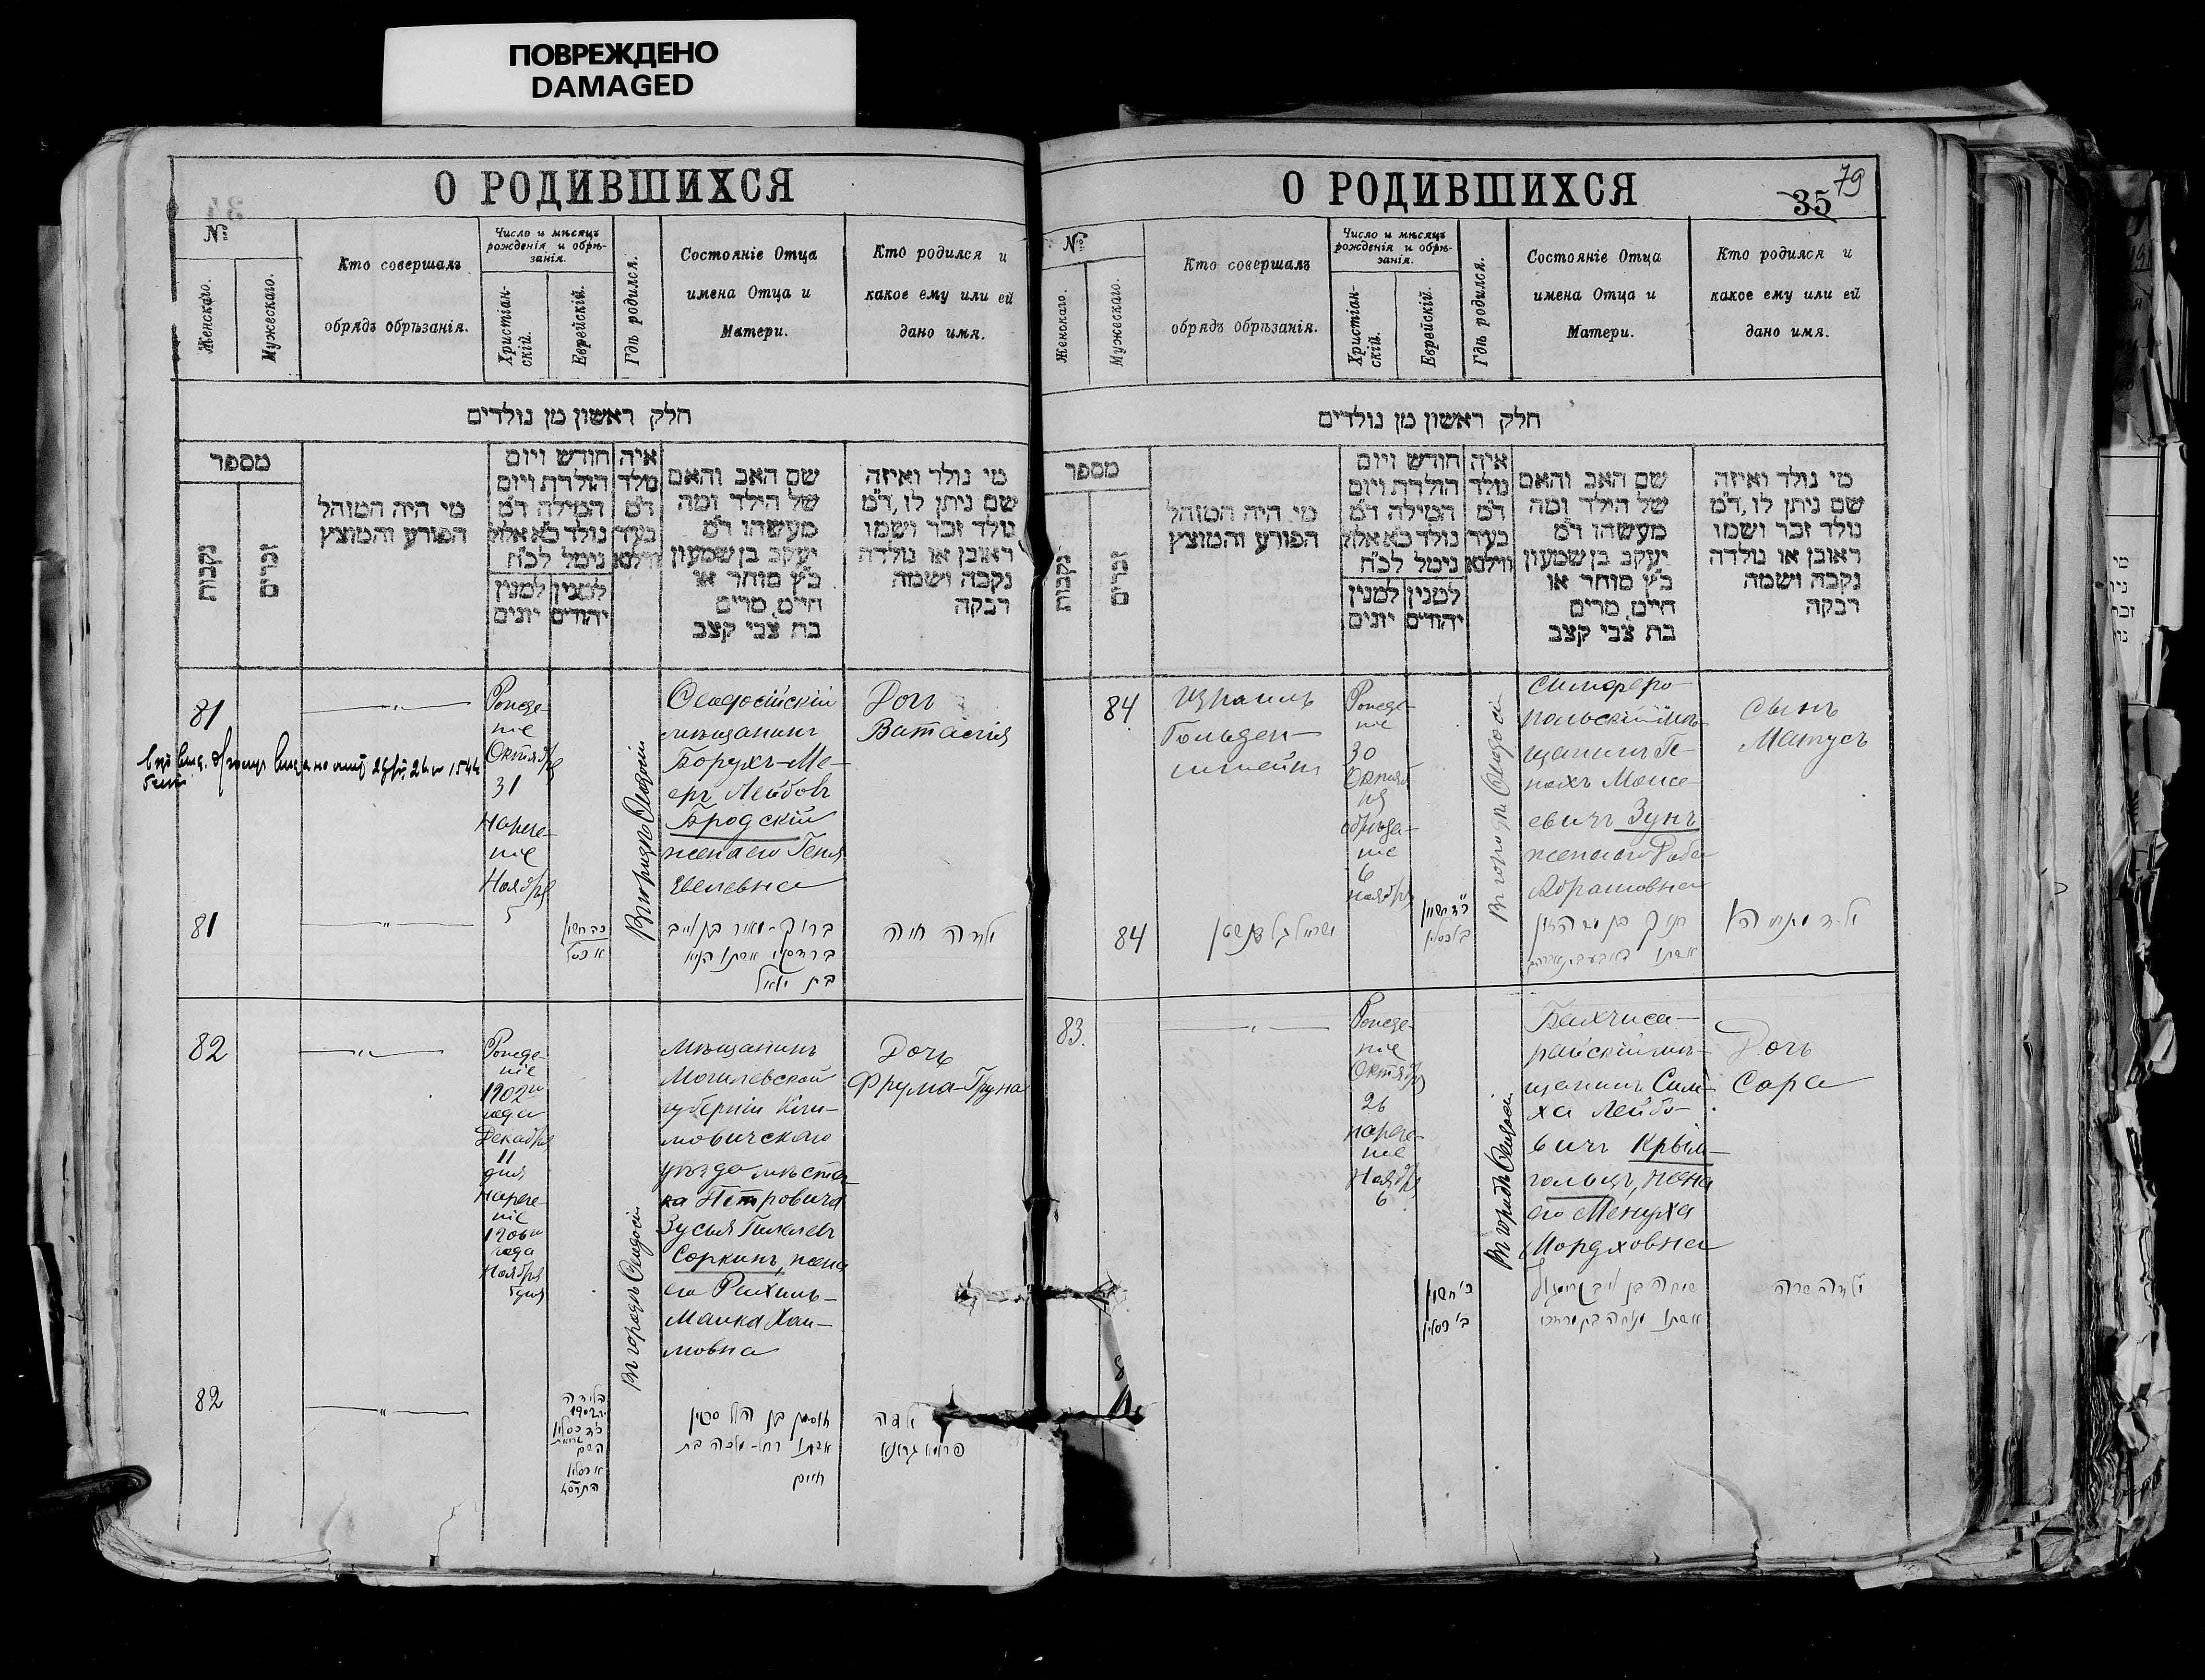 ПОВРЕЖДЕНО
DAMAGED
О РОДИВШИХСЯ
№
Женскаго.
Мужескаго.
Кто совершалъ
обрядъ обрѣзанія.
Число и мѣсяцъ
рожденія и обрѣ-
занія.
Христіан-
скій.
Еврейскій.
Гдѣ родился.
Состояніе Отца
имена Отца и
Матери.
Кто родился и
какое ему или ей
дано имя.
חלק ראשון מן נולדים
מספר
נקבות
זכרים
מי היה המוהל
הפורע והמוצץ
חודש ויום
הולדת ויום
המילה ד״מ
נולד כ״א אלול
נימל לכ״ח
למנין
יונים
למנין
יהודים
איה
מלד
ד״מ
בעיר
ווילנא
שם האב והאם
של הילד ומה
מעשהו ד״מ
יעקב בן שמעון
כ״ץ סוחר או
חייט, מרים
בת צבי קצב
מי נולד ואיזה
שם ניתן לו, ד״מ
נולד זכר ושמו
ראובן או נולדה
נקבה ושמה
רבקה
81
Рожде-
ніе
Октября
31
Нарече-
ніе
Ноября
5
Въ городѣ Ѳеодосіи
Ѳеодосійскій
мѣщанинъ
Борухъ-Ме-
еръ Лейбовъ
Бродскій
жена его Геня
Евелевна
Дочь
81
ילדה חיה
82
Рожде-
ніе
1902го
года
Декабря
11
дня
Нарече-
ніе
1906го
года
Ноября
5 дня
Въ городѣ Ѳеодосіи
Мѣщанинъ
Могилевской
губерніи Кли-
мовичскаго
уѣзда мѣстеч-
ка Петровичи
Зусья
Соркинъ, жена
его Рахиль-
Малка Хаи-
мовна
Дочь
Фрума-Груна
82
הלידה
1902
אשתו רחל-מלכה בת
חיים
ילדה
פרומא גרונא
О РОДИВШИХСЯ
35
79
№
Женскаго.
Мужескаго.
Кто совершалъ
обрядъ обрѣзанія.
Число и мѣсяцъ
рожденія и обрѣ-
занія.
Христіан-
скій.
Еврейскій.
Гдѣ родился.
Состояніе Отца
имена Отца и
Матери.
Кто родился и
какое ему или ей
дано имя.
חלק ראשון מן נולדים
מספר
נקבות
זכרים
מי היה המוהל
הפורע והמוצץ
חודש ויום
הולדת ויום
המילה ד״מ
נולד כ״א אלול
נימל לכ״ח
למנין
יונים
למנין
יהודים
איה
מלד
ד״מ
בעיר
ווילנא
שם האב והאם
של הילד ומה
מעשהו ד״מ
יעקב בן שמעון
כ״ץ סוחר או
חייט, מרים
בת צבי קצב
מי נולד ואיזה
שם ניתן לו, ד״מ
נולד זכר ושמו
ראובן או נולדה
נקבה ושמה
רבקה
84
Израиль
Гольден-
штейнъ
Рожде-
ніе
30
Октяб-
ря
обрѣза-
ніе
6
ноября
Въ городѣ Ѳеодосіи
Симферо-
польскій мѣ-
щанинъ Ге-
нахъ Моисе-
евичъ Зунъ
жена его
Абрамовна
Сынъ
Матусъ
84
83.
Рожде-
ніе
Октября
26
нарече-
ніе
Ноября
6
Въ городѣ Ѳеодосіи
Бахчиса-
райскій мѣ-
щанинъ Сим-
ха Лейбо-
вичъ Крым-
гольцъ, жена
его Менуха
Мордховна
Дочь
Сара
ילדה שרה